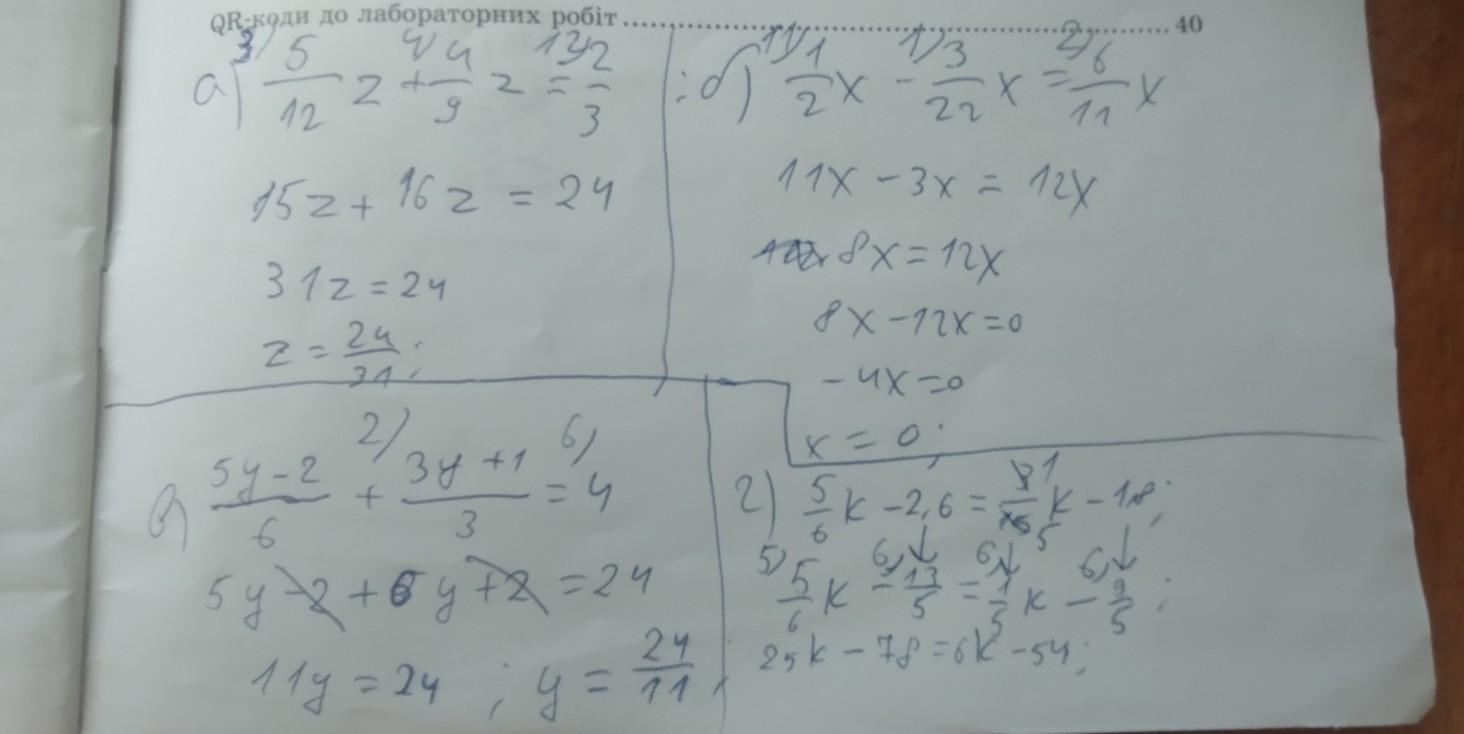 QR-коди до лабораторних робіт ........ 40
а) 3) 5/12 z + 4) 4/9 z = 12) 2/3
15z + 16z = 24
31z = 24
z = 24/31;
; б) 11) 1/2 x - 1) 3/22 x = 2) 6/11 x
11x - 3x = 12x
8x = 12x
8x - 12x = 0
-4x = 0
x = 0;
в) (5y - 2)/6 + 2) (3y + 1)/3 = 6) 4
5y - 2 + 6y + 2 = 24
11y = 24 ; y = 24/11;
г) 5/6 k - 2,6 = 1/5 k - 1,8;
5) 5/6 k - 6) 13/5 = 6) 1/5 k - 6) 9/5;
25k - 78 = 6k - 54;